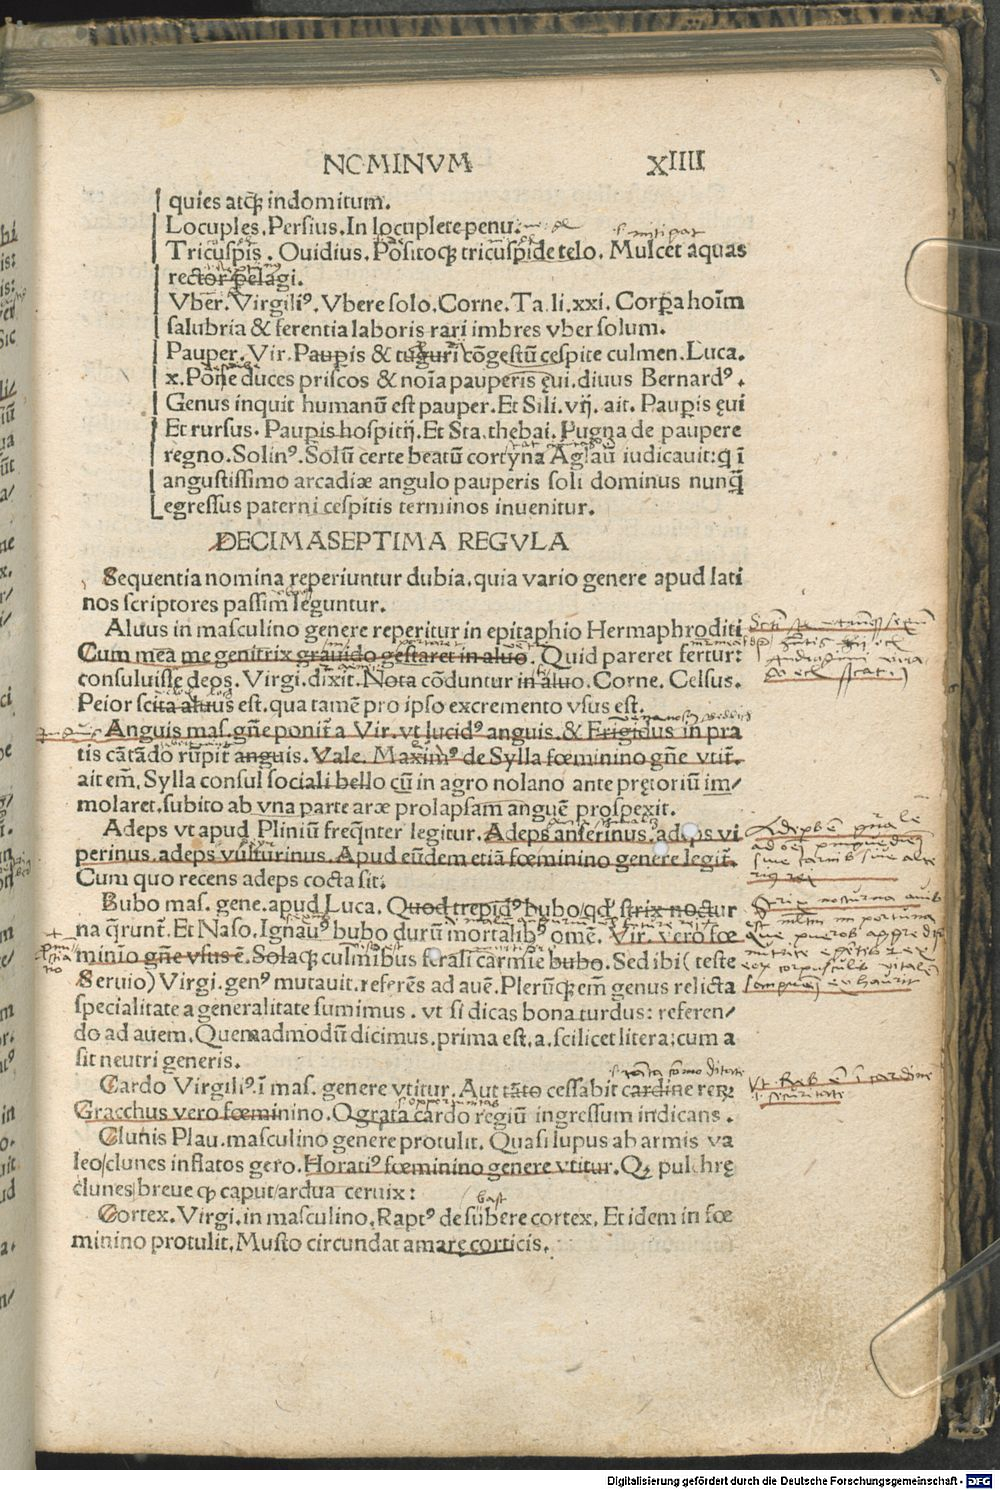 NOMINVM XIIII
quies atq̃ indomitum.
Locuples. Persius. In locuplete penu.
Tricuspis. Ouidius. Positoq̃ tricuspide telo. Mulcet aquas
rector pelagi.
Vber. Virgiliꝰ. Vbere solo. Corne. Ta. li. xxi. Corpa hoim̄
salubria & ferentia laboris rari imbres vber solum.
Pauper. Vir. Paupis & tuguri cōgestū cespite culmen. Luca.
x. Pōne duces priscos & noīa pauperis ęui. diuus Bernardꝰ.
Genus inquit humanū est pauper. Et Sili. vij. ait. Paupis ęui
Et rursus. Paupis hospitij. Et Sta. thebai. Pugna de paupere
regno. Solinꝰ. Solū certe beatū cortyna Aglaū iudicauit: q ī
angustissimo arcadiæ angulo pauperis soli dominus nunq̃
egressus paterni cespitis terminos inuenitur.
DECIMASEPTIMA REGVLA
Sequentia nomina reperiuntur dubia. quia vario genere apud lati
nos scriptores passim leguntur.
Aluus in masculino genere reperitur in epitaphio Hermaphroditi
Cum mea me genitrix grauido gestaret in aluo. Quid pareret fertur:
consuluisse deos. Virgi. dixit. Nota cōduntur in aluo. Corne. Celsus.
Peior scita aluus est. qua tamē pro ipso excremento vsus est.
Anguis mas. gn̄e ponit̄ a Vir. vt lucidꝰ anguis. & Frigidus in pra
tis cātādo rūpit̄ anguis. Vale. Maximꝰ de Sylla fœminino gn̄e vtit̄.
ait em̄. Sylla consul sociali bello cū in agro nolano ante prętoriū im/
molaret. subito ab vna parte aræ prolapsam anguē prospexit.
Adeps vt apud Pliniū freq̃nter legitur. Adeps anserinus. adeps vi
perinus. adeps vulturinus. Apud eūdem etiā fœminino genere legit̄.
Cum quo recens adeps cocta sit:
Bubo mas. gene. apud Luca. Quod trepidꝰ bubo/qd̓ strix noctur
na q̄runt̄. Et Naso. Ignauꝰ bubo durū mortalibꝰ omē. Vir. vero fœ
minio gn̄e vsus ē. Solaq̃ culmibus ferali carmie bubo. Sed ibi (teste
Seruio) Virgi. genꝰ mutauit. referēs ad auē. Plerūq̃ em̄ genus relicta
specialitate a generalitate sumimus. vt si dicas bona turdus: referen/
do ad auem. Quemadmodū dicimus. prima est. a. scilicet litera: cum a
sit neutri generis.
Cardo Virgiliꝰ. ī mas. genere vtitur. Aut tāto cessabit cardine reꝝ
Gracchus vero fœminino. O grata cardo regiū ingressum indicans.
Clunis Plau. masculino genere protulit. Quasi lupus ab armis va
leo/clunes inflatos gero. Horatiꝰ fœminino genere vtitur. Qꝫ pulchrę
clunes/breue q̃ caput/ardua ceruix:
Cortex. Virgi. in masculino. Raptꝰ de subere cortex. Et idem in fœ
minino protulit. Musto circundat amare corticis.
Digitalisierung gefördert durch die Deutsche Forschungsgemeinschaft - DFG